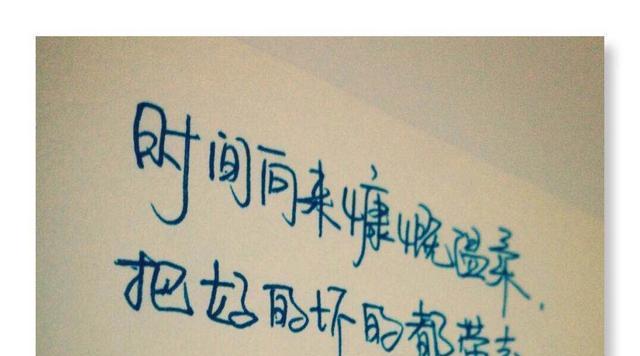 时间向来慷慨温柔.
把好的坏的都带